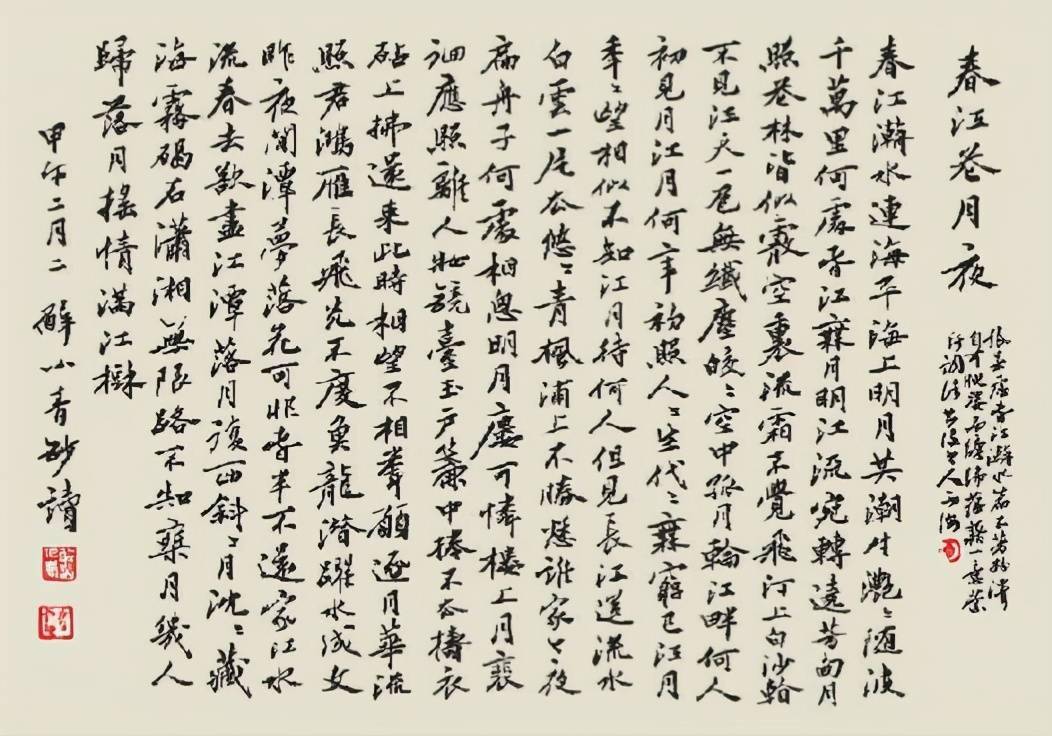 春江花月夜
張若虛春江潮水篇不著粉澤
自有腴姿而纏綿蘊藉一意縈
紆調法出沒令人不測
春江潮水連海平海上明月共潮生灧〻随波
千萬里何處春江無月明江流宛轉遶芳甸月
照花林皆似霰空裏流霜不覺飛汀上白沙看
不見江天一色無纖塵皎〻空中孤月輪江畔何人
初見月江月何年初照人〻生代〻無窮已江月
年〻望相似不知江月待何人但見長江送流水
白雲一片去悠〻青楓浦上不勝愁誰家今夜
扁舟子何處相思明月廔可憐樓上月裵
佪應照離人妝鏡臺玉戶簾中捲不去擣衣
砧上拂還來此時相望不相聞願逐月華流
照君鴻雁長飛光不度魚龍潜躍水成文
昨夜閒潭夢落花可怜春半不還家江水
流春去欲盡江潭落月復西斜〻月沈〻藏
海霧碣石瀟湘無限路不知乘月幾人
歸落月摇情滿江樹
甲午二月二 薛小青抄讀